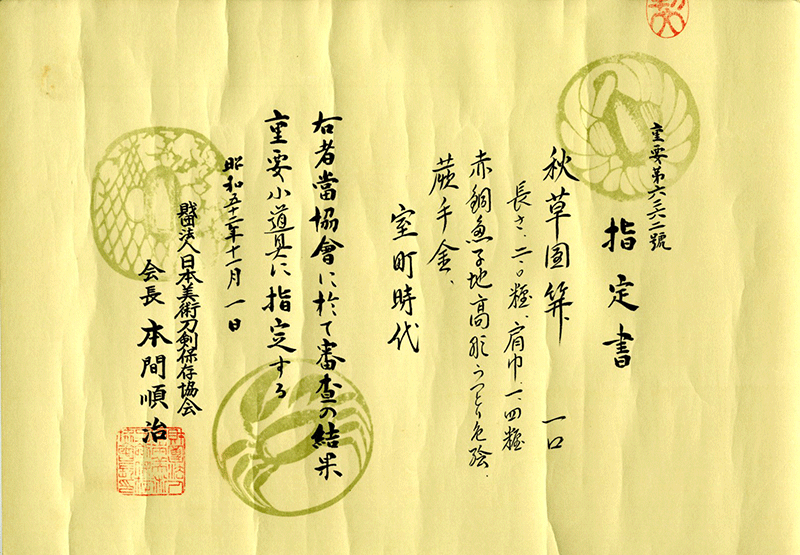 重要第六三二號
指定書
秋草図笄 一口
長さ、糎、肩巾、一、四糎
赤銅魚子地高彫うっとり色絵、
蕨手金、
室町時代
右者當協會に於て審査の結果
重要小道具に指定する
昭和五十三年十一月一日
財団法人日本美術刀剣保存協会
会長 本間順治